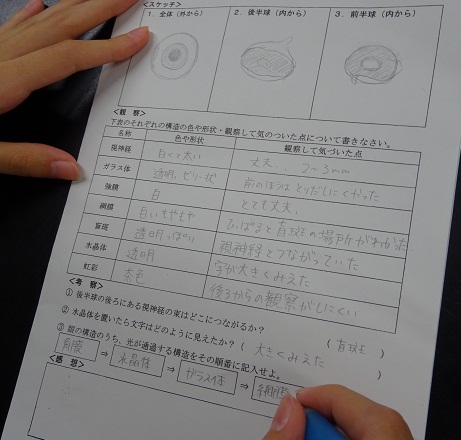 <スケッチ>
1. 全体（外から） 2. 後半球（内から） 3. 前半球（内から）
<観 察>
下表のそれぞれの構造の色や形状・観察して気のついた点について書きなさい。
名称 色や形状 観察して気づいた点
視神経 白くて太い 丈夫、2〜3mm
ガラス体 透明、ゼリー状 前のほうはとりだしにくかった
強膜 白 とても丈夫、
網膜 白いもやもや ひっぱると盲斑の場所がわかった
盲斑 透明っぽい 視神経とつながっていた
水晶体 透明 字が大きくみえた
虹彩 茶色 後ろからの観察がしにくい
<考 察>
① 後半球の後ろにある視神経の束はどこにつながるか？ （ 盲斑 ）
② 水晶体を置いたら文字はどのように見えたか？ （ 大きくみえた ）
③ 眼の構造のうち、光が通過する構造をその順番に記入せよ。
角膜 ⇒ 水晶体 ⇒ ガラス体 ⇒ 網膜
<感 想>